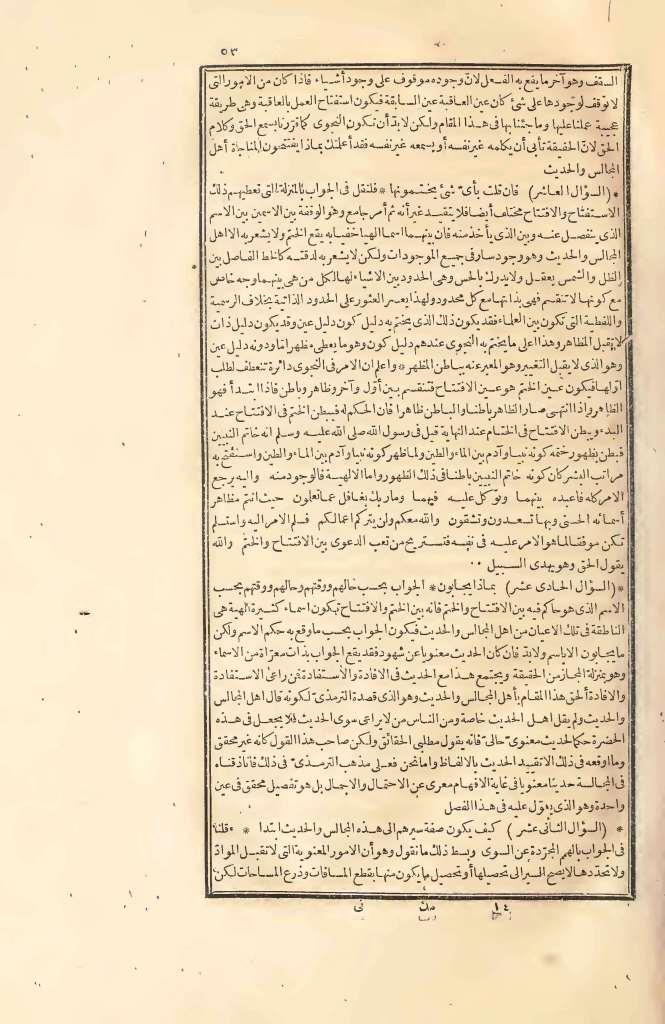 ٥٣
السقف وهو آخر ما يقع به الفعل لان وجوده موقوف على وجود أشياء فاذا كان من الامور التى
لا توقف لوجودها على شئ كان عين العاقبة عين السابقة فيكون استفتاح العمل بالعاقبة وهى طريقة
عجيبة عملنا عليها وما جئنا بها فى هذا المقام ولكن لابد أن تكون النجوى كما قررنا يسمع الحق وكلام
الحق لان الحقيقة تأبى أن يكلمه غير نفسه أو يسمعه غير نفسه فقد أعلمتك بماذا يفتتحون المناجاة أهل
المجالس والحديث
* (السؤال العاشر) فان قلت بأى شئ يختمونها * فلنقل فى الجواب بالمنزلة التى تعطيهم ذلك
الاستفتاح والافتتاح مختلف أيضا فلا يتقيد غير أنه ثم أمر جامع وهو الوقفة بين الاسمين بين الاسم
الذى ينفصل عنه وبين الذى يأخذ منه فان بينهما اسما الهيا خفيا به يقع الختم ولا يشعر به الا اهل
المجالس والحديث وهو وجود سار فى جميع الموجودات ولكن لا يشعر به لدقته كالخط الفاصل بين
الظل والشمس يعقل ولا يدرك بالحس وهى الحدود بين الاشياء لها لكل من هى بينهما وجه خاص
مع كونها لا تنقسم فهى بذاتها مع كل محدود ولهذا يعسر العثور على الحدود الذاتية بخلاف الرسمية
واللفظية التى تكون بين العلماء فقد يكون ذلك الذى يختم به دليل كون دليل عين وقد يكون دليل ذات
لا يقبل المظاهر وهذا اعلى ما يختم به النجوى عندهم دليل كون وهو ما يعطى مظهرا ما ودونه دليل عين
وهو الذى لا يقبل التغيير وهو المعبر عنه بباطن المظهر * واعلم ان الامر فى النجوى دائرة تنعطف لطلب
اولها فيكون عين الختم هو عين الافتتاح فتنقسم بين أول وآخر وظاهر وباطن فاذا ابتدأ فهو
الظاهر واذا انتهى صار الظاهر باطنا والباطن ظاهرا فان الحكم له فيبطن الختم فى الافتتاح عند
البدء ويبطن الافتتاح فى الختام عند النهاية قيل فى رسول الله صلى الله عليه وسلم انه خاتم النبيين
فبطن بظهور ختمه كونه نبيا وآدم بين الماء والطين ولما ظهر كونه نبيا وآدم بين الماء والطين واستفتح به
مراتب البشر كان كونه خاتم النبيين باطنا فى ذلك الظهور واما الالهية فالوجود منه واليه يرجع
الامر كله فاعبده بينهما وتوكل عليه فيهما وما ربك بغافل عما تعملون حيث انتم مظاهر
أسمائه الحسنى وبها تسعدون وتشقون والله معكم ولن يتركم اعمالكم فسلم الامر اليه واستسلم
تكن موفقا لما هو الامر عليه فى نفسه فتستريح من تعب الدعوى بين الافتتاح والختم والله
يقول الحق وهو يهدى السبيل
* (السؤال الحادى عشر) بماذا يجابون * الجواب بحسب حالهم ووقتهم وحالهم ووقتهم بحسب
الاسم الذى هو حاكم فيه بين الافتتاح والختم فانه بين الختم والافتتاح تكون اسماء كثيرة الهية هى
الناطقة فى تلك الاعيان من اهل المجالس والحديث فيكون الجواب بحسب ما وقع به حكم الاسم ولكن
ما يجابون الا باسم ولابد فان كان الحديث معنويا عن شهود فقد يقع الجواب بذات معراة من الاسماء
وهو بمنزلة المجاز من الحقيقة ويجتمع هذا مع الحديث فى الافادة والاستفادة فمن راعى الاستفادة
والافادة ألحق هذا المقام بأهل المجالس والحديث وهو الذى قصده الترمذى لكونه قال اهل المجالس
والحديث ولم يقل اهل الحديث خاصة ومن الناس من لا يراعى سوى الحديث فلا يجعل فى هذه
الحضرة حكما لحديث معنوى حالى فانه يقول مطلبى الحقائق ولكن صاحب هذا القول كانه غير محقق
وما اوقعه فى ذلك الا تقييد الحديث بالالفاظ واما نحن فعلى مذهب الترمذى فى ذلك فاناذقناه
فى المجالسة حديثا معنويا فى غاية الافهام معرى عن الاحتمال والاجمال بل هو تفصيل محقق فى عين
واحدة وهو الذى يعول عليه فى هذا الفصل
* (السؤال الثانى عشر) كيف يكون صفة سيرهم الى هذه المجالس والحديث ابتدا * قلنا
فى الجواب بالهمم المجردة عن السوى وبسط ذلك ما نقول وهو أن الامور المعنوية التى لا تقبل المواد
ولا تحددها لا يصح السير الى تحصيلها أو تحصيل ما يكون منها بقطع المسافات وذرع المساحات لكن
١٤ مك نى